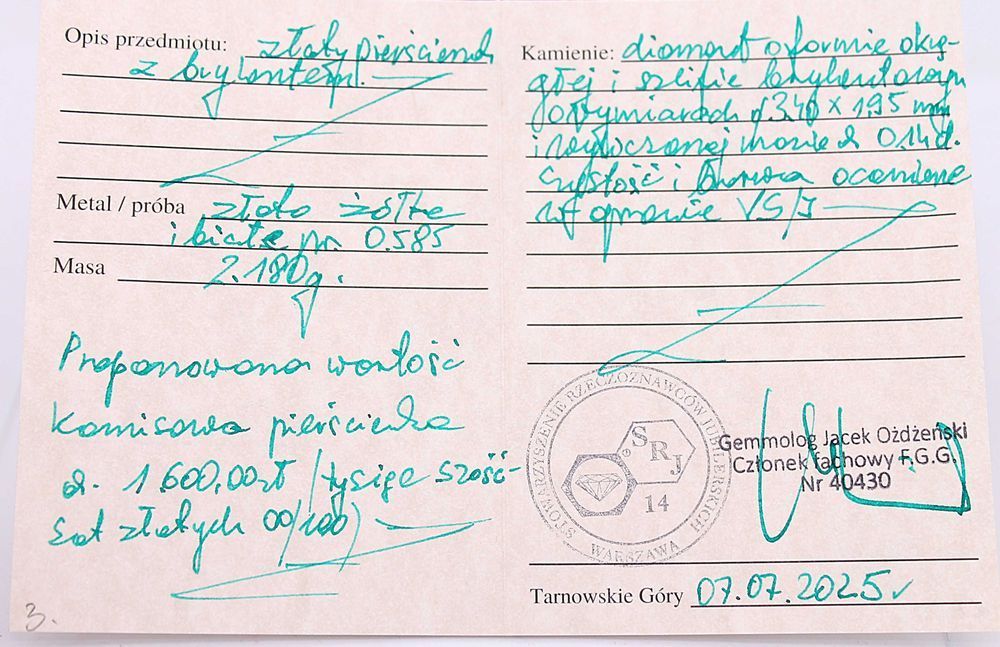 Opis przedmiotu: złoty pierścionek
z brylantem.
Metal / próba złoto żółte
i białe pr. 0.585
Masa 2.180g.
Proponowana wartość
komisowa pierścionka
1.600,00zł /tysiąc sześć-
set złotych 00/100)
3.
Kamienie: diament o formie okrą-
głej i szlifie brylantowym
o wymiarach ø 3.40 x 1.95 mm
i wyliczonej masie 0.14ct.
Czystość i barwa ocenione
w oprawie VS/J
STOWARZYSZENIE RZECZOZNAWCÓW JUBILERSKICH
WARSZAWA
SRJ
14
Gemmolog Jacek Ożdżeński
Członek fachowy F.G.G.
Nr 40430
Tarnowskie Góry 07.07.2025r